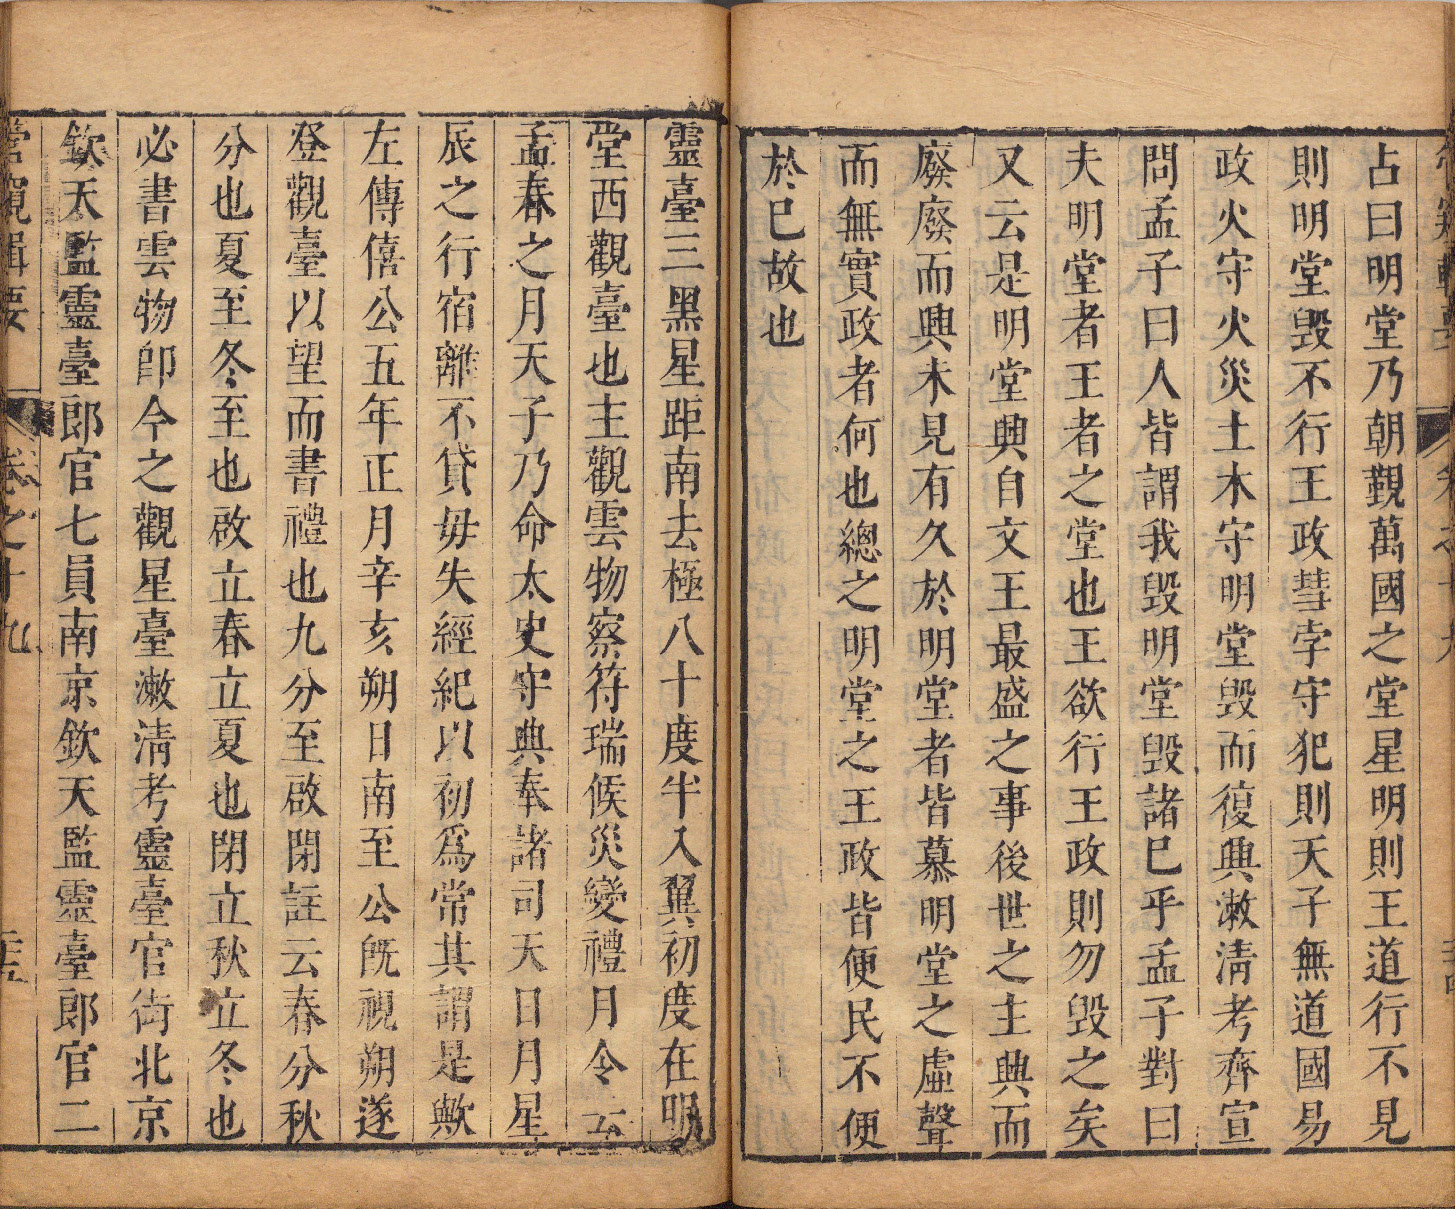 占曰明堂乃朝覲萬國之堂星明則王道行不見
則明堂毀不行王政彗孛守犯則天子無道國易
政火守火災土木守明堂毀而復興漖清考齊宣
問孟子曰人皆謂我毀明堂毀諸巳乎孟子對曰
夫明堂者王者之堂也王欲行王政則勿毀之矣
又云是明堂興自文王最盛之事後世之主典而
廢廢而興未見有久於明堂者皆慕明堂之虛聲
而無實政者何也總之明堂之王政皆便民不便
於巳故也
靈臺三黑星距南去極八十度半入翼初度在明
堂西觀臺也主觀雲物察符瑞候災變禮月令云
孟春之月天子乃命太史守典奉諸司天日月星
辰之行宿離不貸毋失經紀以初爲常其謂是歟
左傳僖公五年正月辛亥朔日南至公旣視朔遂
登觀臺以望而書禮也九分至啟閉註云春分秋
分也夏至冬至也啟立春立夏也閉立秋立冬也
必書雲物卽今之觀星臺漖清考靈臺官街北京
欽天監靈臺郎官七員南京欽天監靈臺郎官二
管窺輯要 卷之十九